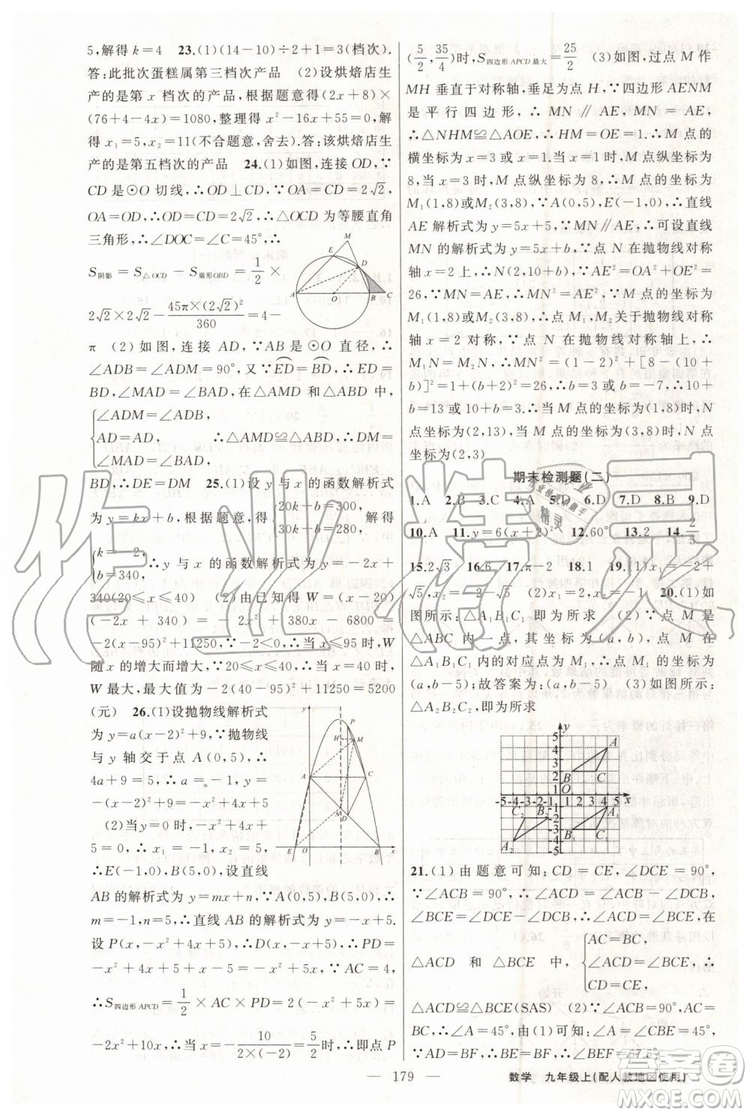 5,解得 k=4 23.(1)(14-10)÷2+1=3(档次).
答:此批次蛋糕属第三档次产品 (2)设烘焙店
生产的是第 x 档次的产品,根据题意得(2x+8)×
(76+4-4x)=1080,整理得 x²-16x+55=0,解
得 x₁=5,x₂=11(不合题意,舍去).答:该烘焙店
生产的是第五档次的产品 24.(1)如图,连接 OD,∵
CD 是⊙O 切线,∴OD⊥CD,∵OA=CD=2√2,
OA=OD,∴OD=CD=2√2,∴△OCD 为等腰直角
三角形,∴∠DOC=∠C=45°,∴
S阴影=S△OCD-S扇形OBD=1/2×
2√2×2√2-45π×(2√2)²/360=4-
π (2)如图,连接 AD,∵AB 是⊙O 直径,∴
∠ADB=∠ADM=90°,又∵ED=BD,∴ED=
BD,∠MAD=∠BAD,在△AMD 和△ABD 中,
{∠ADM=∠ADB,
AD=AD,
∠MAD=∠BAD, ∴△AMD≌△ABD,∴DM=
BD,∴DE=DM 25.(1)设 y 与 x 的函数解析式
为 y=kx+b,根据题意,得{20k+b=300,
30k+b=280, 解得
{k=-2,
b=340, ∴y 与 x 的函数解析式为 y=-2x+
340(20≤x≤40) (2)由已知得 W=(x-20)
(-2x+340)=-2x²+380x-6800=
-2(x-95)²+11250,∵-2<0,∴当 x≤95 时,W
随 x 的增大而增大,∵20≤x≤40,∴当 x=40 时,
W 最大,最大值为-2(40-95)²+11250=5200
(元) 26.(1)设抛物线解析式
为 y=a(x-2)²+9,∵抛物线
与 y 轴交于点 A(0,5),∴
4a+9=5,∴a=-1,y=
-(x-2)²+9=-x²+4x+5
(2)当 y=0 时,-x²+4x+5
=0,∴x₁=-1,x₂=5,
∴E(-1,0),B(5,0),设直线
AB 的解析式为 y=mx+n,∵A(0,5),B(5,0),∴
m=-1,n=5,∴直线 AB 的解析式为 y=-x+5.
设 P(x,-x²+4x+5),∴D(x,-x+5),∴PD=
-x²+4x+5+x-5=-x²+5x,∵AC=4,
∴S四边形APCD=1/2×AC×PD=2(-x²+5x)=
-2x²+10x,∴当 x=-10/(2×(-2))=5/2时,即点 P
(5/2,35/4)时,S四边形APCD最大=25/2 (3)如图,过点 M 作
MH 垂直于对称轴,垂足为点 H,∵四边形 AENM
是平行四边形,∴MN∥AE,MN=AE,∴
△NHM≌△AOE,∴HM=OE=1,∴M 点的
横坐标为 x=3 或 x=1,当 x=1 时,M 点纵坐标为
8,当 x=3 时,M 点纵坐标为 8,∴M 点的坐标为
M₁(1,8)或 M₂(3,8),∵A(0,5),E(-1,0),∴直线
AE 解析式为 y=5x+5,∵MN∥AE,∴可设直线
MN 的解析式为 y=5x+b,∵点 N 在抛物线对称
轴 x=2 上,∴N(2,10+b),∵AE²=OA²+OE²=
26,∵MN=AE,∴MN²=AE²,∵M 点的坐标为
M₁(1,8)或 M₂(3,8),∴点 M₁,M₂关于抛物线对称
轴 x=2 对称,∵点 N 在抛物线对称轴上,∴
M₁N=M₂N,∴MN²=(1-2)²+[8-(10+
b)]²=1+(b+2)²=26,∴b=3 或 b=-7,∴10+
b=13 或 10+b=3,∴当 M 点的坐标为(1,8)时,N
点坐标为(2,13),当 M 点的坐标为(3,8)时,N
点坐标为(2,3)
期末检测题(二)
1.A 2.B 3.C 4.A 5. 6.D 7.D 8.B 9.D
10.A 11.y=6(x+2)² 12.60° 13.2 14.2/3
15.2√3 16. 17.π-2 18.1 19.(1)x₁=
(2)x₁=2,x₂= 20.(1)如
图所示:△A₁B₁C₁即为所求 (2)∵点 M 是
△A₁B₁C₁ 内的对应点为 M₁,∴点 M₁ 的坐标为
(a,b-5);故答案为:(a,b-5) (3)如图所示:
△A₂B₂C₂,即为所求
21.(1)由题意可知:CD=CE,∠DCE=90°,
∵∠ACB=90°,∴∠ACD=∠ACB-∠DCB,
∠BCE=∠DCE-∠DCB,∴∠ACD=∠BCE,在
△ACD 和 △BCE 中,{AC=BC,
∠ACD=∠BCE,
CD=CE,
∴△ACD≌△BCE(SAS) (2)∵∠ACB=90°,
AC=BC,∴∠A=45°,∵△ACD≌△BCE,
∴∠A=∠CBE=45°,∵AD=BF,∴BE=BF,
— 179 — 数学 九年级上(配人教地区使用)
作业精灵
答案圈